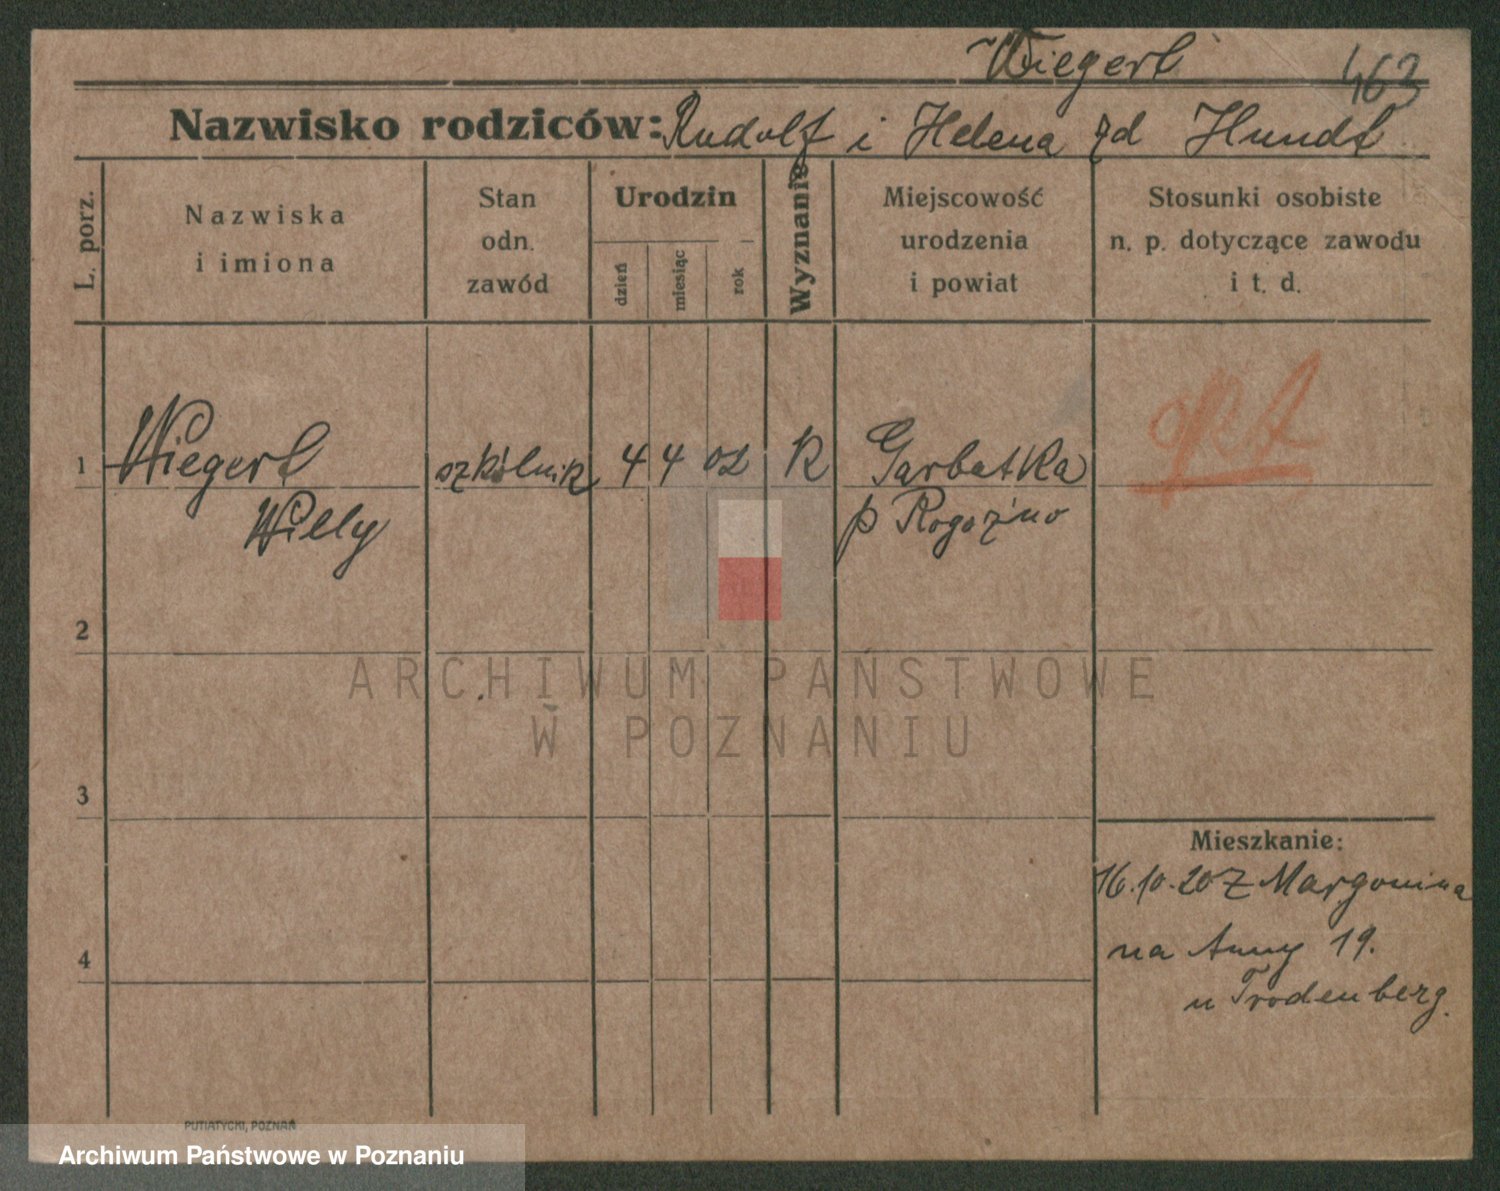 Wiegert
463
Nazwisko rodziców: Rudolf i Helena zd Hundt
L. porz.
Nazwiska
i imiona
Stan
odn.
zawód
Urodzin
dzień
miesiąc
rok
Wyznanie
Miejscowość
urodzenia
i powiat
Stosunki osobiste
n. p. dotyczące zawodu
i t. d.
1 Wiegert szkólnik 4 4 02 K Garbatka
Willy p Rogoźno
2
ARCHIWUM PAŃSTWOWE
W POZNANIU
3
Mieszkanie:
16.10.20 Z Margonina
na Anny 19.
4
u Trodenberg.
PUTIATYCKI, POZNAŃ
Archiwum Państwowe w Poznaniu